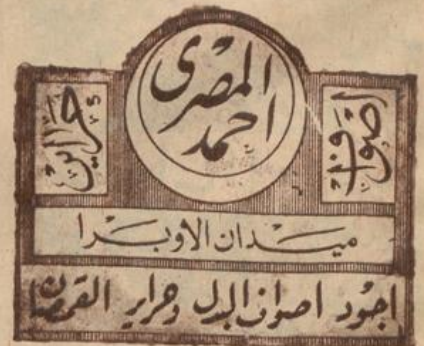 احمد المصرى
اصواف
حراير
ميدان الاوبرا
اجود اصواف البدل وحراير القمصان